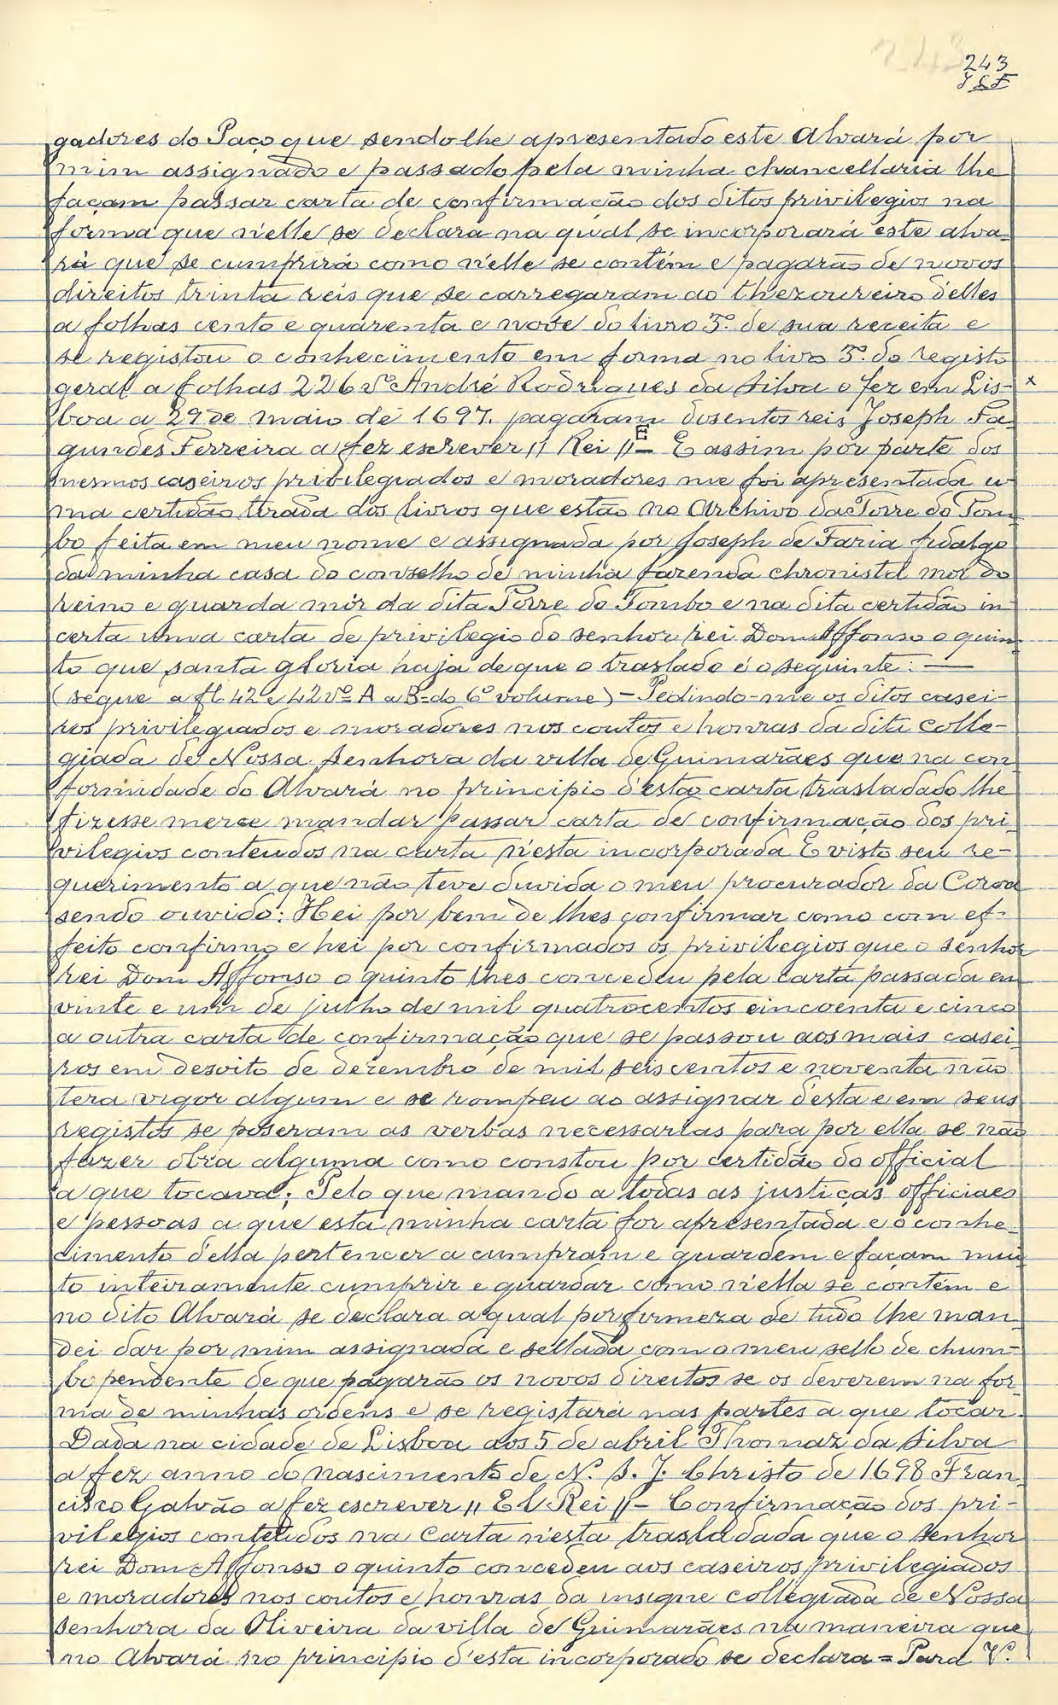 243
gadores do Paço que sendo lhe apresentado este Alvará por
mim assignado e passado pela minha chancellaria lhe
façam passar carta de confirmação dos ditos privilegios na
forma que n'elle se declara na qual se incorporará este alva-
rá que se cumprirá como n'elle se contém e pagarão de novos
direitos trinta reis que se carregaram ao thezoureiro d'elles
a folhas cento e quarenta e nove do livro 3º. de sua receita e
se registou o conhecimento em forma no livro 3º. do registo
geral a folhas 226 vº André Rodrigues da Silva o fez em Lis- x
boa a 29 de maio de 1697. pagaram dosentos reis Joseph Fa-
gundes Ferreira a fez escrever // Rei //= E assim por parte dos
mesmos caseiros privilegiados e moradores me foi apresentada u-
ma certidão tirada dos livros que estão no Archivo da Torre do Tom-
bo feita em meu nome e assignada por Joseph de Faria fidalgo
da minha casa do conselho de minha fazenda chronista mor do
reino e guarda mór da dita Torre do Tombo e na dita certidão in-
certa uma carta de privilegio do senhor rei Dom Affonso o quin-
to que santa gloria haja de que o traslado é o seguinte: —
(segue a fl. 42 e 42 vº A a B do 6º volume) – Pedindo-me os ditos casei-
ros privilegiados e moradores nos coutos e honras da dita Colle-
giada de Nossa Senhora da villa de Guimarães que na con-
formidade do Alvará no principio d'esta carta trasladado lhe
fizesse merce mandar passar carta de confirmação dos pri-
vilegios conteudos na carta n'esta incorporada E visto seu re-
querimento a que não teve duvida o meu procurador da Coroa
sendo ouvido: Hei por bem de lhes confirmar como com ef-
feito confirmo e hei por confirmados os privilegios que o senhor
rei Dom Affonso o quinto lhes concedeu pela carta passada em
vinte e um de julho de mil quatrocentos cincoenta e cinco
a outra carta de confirmação que se passou aos mais casei-
ros em desoito de dezembro de mil seiscentos e noventa não
tera vigor algum e se rompeu ao assignar d'esta e em seus
registos se poseram as verbas necessarias para por ella se não
fazer obra alguma como constou por certidão do official
a que tocava; Pelo que mando a todas as justiças officiaes
e pessoas a que esta minha carta for apresentada e o conhe-
cimento d'ella pertencer a cumpram e guardem e façam mui-
to inteiramente cumprir e guardar como n'ella se contém e
no dito Alvará se declara a qual por firmeza de tudo lhe man-
dei dar por mim assignada e sellada com o meu sello de chum-
bo pendente de que pagarão os novos direitos se os deverem na for-
ma de minhas ordens e se registará nas partes a que tocar.
Dada na cidade de Lisboa aos 5 de abril Thomaz da Silva
a fez anno do nascimento de N. S. J. Christo de 1698 Fran-
cisco Galvão a fez escrever // El Rei //– Confirmação dos pri-
vilegios conteudos na carta n'esta trasladada que o senhor
rei Dom Affonso o quinto concedeu aos caseiros privilegiados
e moradores nos coutos e honras da insigne collegiada de Nossa
senhora da Oliveira da villa de Guimarães na maneira que
no Alvará no principio d'esta incorporado se declara = Para V.